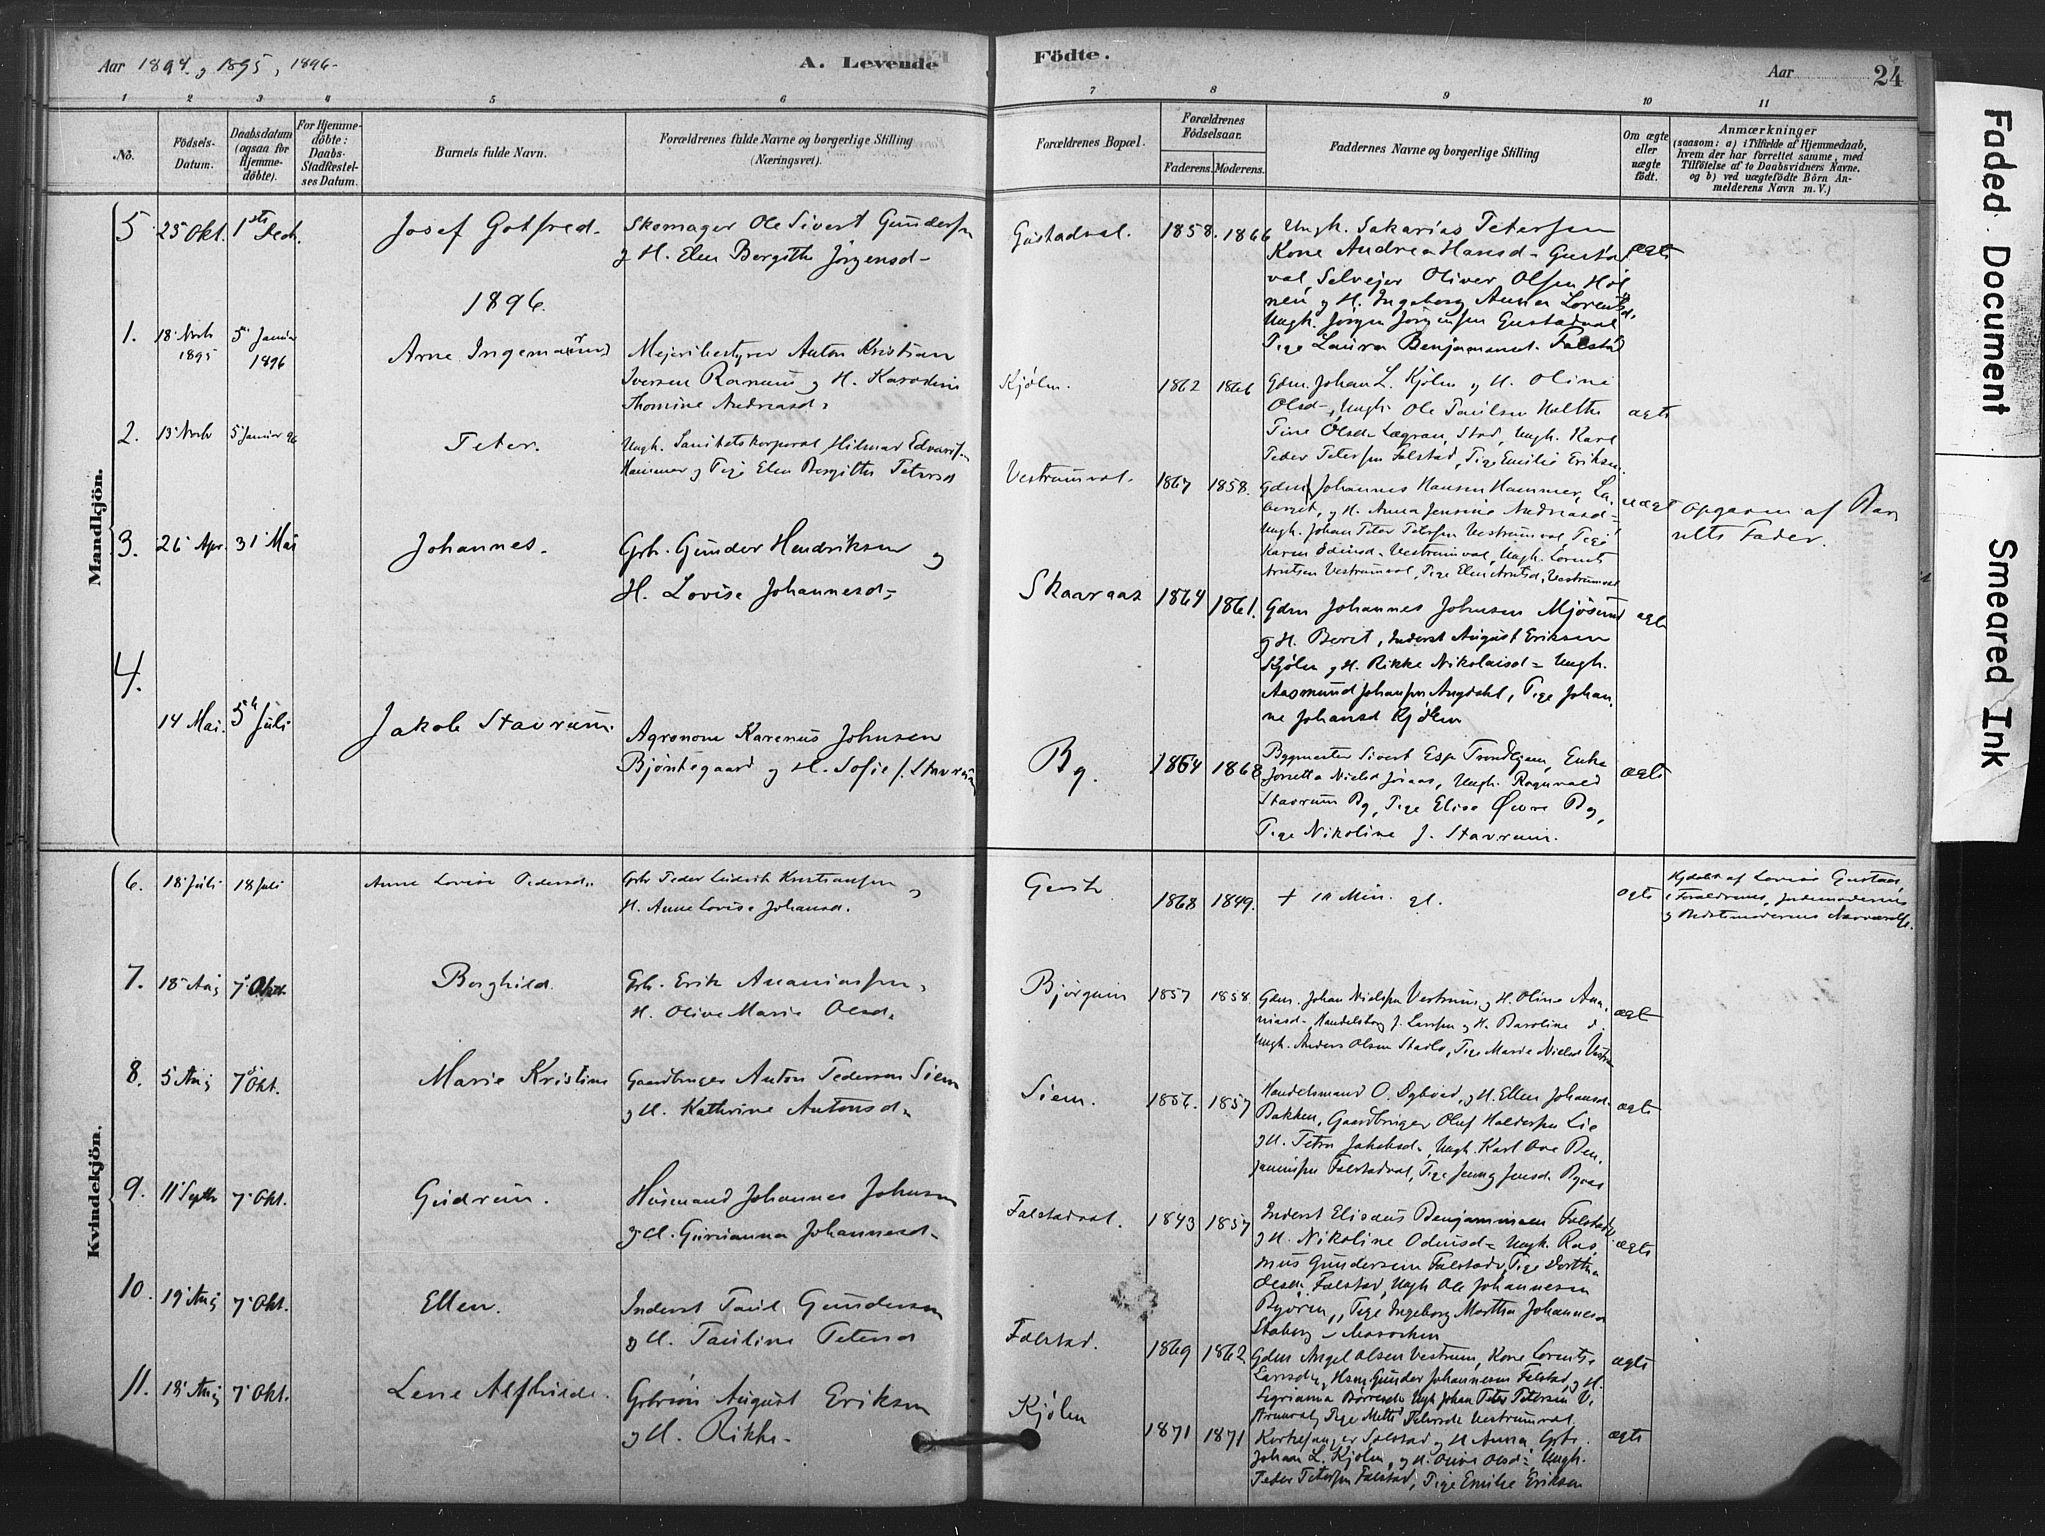 Aar 1894 og 1895, 1896.
A. Levende
Födte.
Aar
24
1 2 3 4 5 6 7 8 9 10 11
No.
Födsels-
Datum.
Daabsdatum
(ogsaa for
Hjemme-
döbte).
For Hjemme-
döbte:
Daabs-
Stadfæstel-
ses Datum.
Barnets fulde Navn.
Forældrenes fulde Navne og borgerlige Stilling
(Næringsvei).
Forældrenes Bopæl.
Forældrenes
Födselsaar.
Faderens. Moderens.
Faddernes Navne og borgerlige Stilling
Om ægte
eller
uægte
født.
Anmærkninger
(saasom: a) i Tilfælde af Hjemmedaab,
hvem der har forrettet samme, med
Tilföielse af to Daabsvidners Navne,
og b) ved uægtefödte Börn An-
melderens Navn m. V.)
Mandkjön.
5 25 Okt. 1ste Dech. Josef Gotfred.
Skomager Ole Sivert Gundersen
og H. Elen Bergitte Jörgensd.
Gustadval. 1858. 1866
Ungk. Sakarias Petersen
Kone Andrea Hansd. Gustad
val, Selveier Oliver Olsen Hol
og H. Ingeborg Anna Lorentsd.
Ungk. Jörgen Jörgensen Gustadval
Pige Laura Benjaminsd. Falstad
ægte
1896.
1. 18 Novb 1895 5 Januar 1896 Arne Ingemann
Meieribestyrer Anton Kristian
Iversen Ranum og H. Karoline
Thomine Andreasd.
Kjölen. 1862 1866
Gdm. Johan L. Kjölen og H. Oline
Olsd., Ungk. Ole Paulsen Holthe
Pige Olsd. Stod, Ungk. Karl
Peder Petersen Falstad, Pige Emilie Eriksen.
ægte
2. 13 Novb 5 Januar 96 Peter.
Ungk. Sanitetskorporal Hilmar Edvardsen
Hammer og Pige Elen Bergitte Petersd
Vestrumval. 1867 1858.
Gdm Johannes Hansen Hammer,
og H. Anna Jensine Andreasd.
Ungk. Johan Peter Petersen Vestrumval Pige
Karen Odinsd. Vestrumval, Ungk. Lorents
Arntsen Vestrumval, Pige Elen Arntsd, Vestrumval
uægte
Opgaven af Bar
nets Fader.
3. 26 Apr. 31 Mai Johannes.
Gbr. Gunder Hendriksen og
H. Lovise Johannesd.
Skaaraas 1864 1861.
Gdm Johannes Johnsen Mjösund
og H. Beret, Inderst August Eriksen
Kjölen og H. Rikke Nikolaisd. Ungk.
Aasmund Johansen Augdahl, Pige Johan
ne Johansd Kjölen
ægte
4.
14 Mai. 5te Juli Jakob Stavrum.
Agronom Karenus Johnsen
Bjöntegaard og H. Sofie J. Stavrum
By. 1864 1868
Bygmester Sivert Esp Trondhjem, Enke
Jonetta Nielsd, Ungk. Ragnvald
Stavrum By, Pige Elise Övre By,
Pige Nikoline J. Stavrum.
ægte
Kvindekjön.
6. 18 Juli 18 Juli Anne Lovise Pedersd.
Gbr Peder Ludvik Kristiansen og
H. Anne Lovise Johansd.
1868 1849.
+ 10 Min. gl.
ægte
Hjdøbt af Lovise Gustad,
i Forældrenes, Jordemoderens
og Bedstemoderens Nærværelse.
7. 18 Aug 7 Okt. Borghild.
Gbr. Erik Ananiassen,
H. Olive Marie Olsd.
Björgum 1857 1858
Gdm. Johan Nielsen Vestrum og H. Oline Ana
niasd. Handelsbog J. Larsen og H. Karoline
Ungk. Anders Olsen Stod, Pige Marie Nielsd Vestrum
ægte
8. 5 Aug 7 Okt. Marie Kristine
Gaardbruger Anton Pedersen Siem
og H. Kathrine Antonsd.
Siem. 1856. 1857
Handelsmand O. Dybvad, og H. Ellen Johansd.
Bakken, Gaardbruger Oluf Haldorsen Lie
og H. Petra Jakobsd. Ungk. Karl Ove Ben
jaminsen Falstadval, Pige Jenny Jensd. Byvald
ægte
9. 11 Septbr 7 Okt. Gudrun.
Husmand Johannes Johnsen
og H. Gurianna Johannesd.
Falstadval. 1843 1857
Inderst Elisæus Benjaminsen Falstadv.
og H. Nikoline Odinsd. Ungk. Ras
mus Gundersen Falstadv, Pige Dorthea
Olsd. Falstad, Ungk Ole Johannesen
Pige Ingeborg Martha Johannesd
ægte
10. 19 Aug 7 Okt. Ellen.
Inderst Paul Gundersen
og H. Pauline Petersd
Falstad. 1869 1862
Gdm Angel Olsen Vestrum, Kone Lorentse
Larsd, Hsm Gunder Johannesen Falstad og H.
Sigrianna Ungk Johan Peter Petersen V
strumval, Pige Mette Petersd Vestrumval.
ægte
11. 18 Aug 7 Okt. Lene Alfhilde.
August Eriksen
og H. Rikke.
Kjölen 1871 1871
Kirkesanger Solstad og H Anna, Gbr.
Johan L. Kjölen, og H. Olive Olsd. Ungk.
Peder Petersen Falstad, Pige Emilie Eriksen
ægte
Faded Document
Smeared Ink